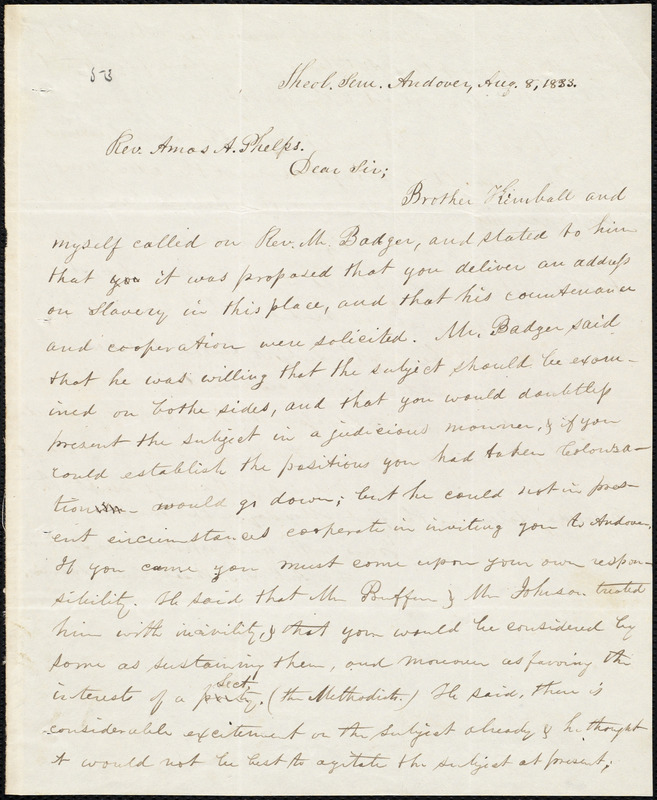 53
Theol. Sem. Andover, Aug. 8, 1833.
Rev. Amos A. Phelps.
Dear Sir;
Brother Kimball and
myself called on Rev. Mr. Badger, and stated to him
that you it was proposed that you deliver an address
on Slavery in this place, and that his countenance
and cooperation were solicited. Mr. Badger said
that he was willing that the subject should be exam-
ined on bothe sides, and that you would doubtless
present the subject in a judicious manner, & if you
could establish the positions you had taken Coloniza-
tion would go down; but he could not in pres-
ent circumstances cooperate in inviting you to Andover.
If you came you must come upon your own respon-
sibility. He said that Mr. Buffum & Mr. Johnson treated
him with incivility, & that you would be considered by
some as sustaining them, and moreover as favoring the
interests of a party Sect. (the Methodists.) He said, there is
considerable excitement on the subject already & he thought
it would not be best to agitate the subject at present;